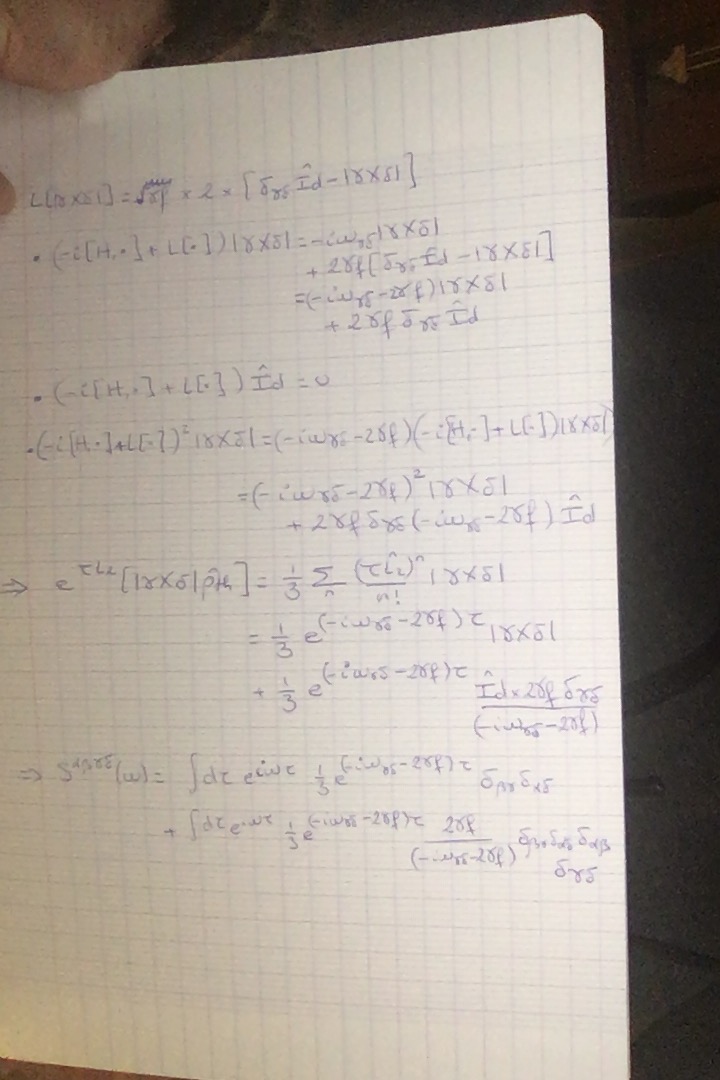 L[|γ><δ|] = γf × 2 × [δγδ Îd - |γ><δ|]
• (-i[H,·] + L[·]) |γ><δ| = -iωγδ |γ><δ|
+ 2γf [δγδ Îd - |γ><δ|]
= (-iωγδ - 2γf) |γ><δ|
+ 2γf δγδ Îd
• (-i[H,·] + L[·]) Îd = 0
• (-i[H,·] + L[·])² |γ><δ| = (-iωγδ - 2γf) (-i[H,·] + L[·]) |γ><δ|
= (-iωγδ - 2γf)² |γ><δ|
+ 2γf δγδ (-iωγδ - 2γf) Îd
⇒ e^{τL₂} [|γ><δ| ρ̂th] = 1/3 Σn (τL̂₂)ⁿ/n! |γ><δ|
= 1/3 e^{(-iωγδ - 2γf)τ} |γ><δ|
+ 1/3 e^{(-iωγδ - 2γf)τ} Îd × 2γf δγδ/(-iωγδ - 2γf)
⇒ S^{αβγδ}(ω) = ∫dτ e^{iωτ} 1/3 e^{(-iωγδ - 2γf)τ} δβγ δαδ
+ ∫dτ e^{iωτ} 1/3 e^{(-iωγδ - 2γf)τ} 2γf/(-iωγδ - 2γf) δβγ δαδ δαβ
δγδ